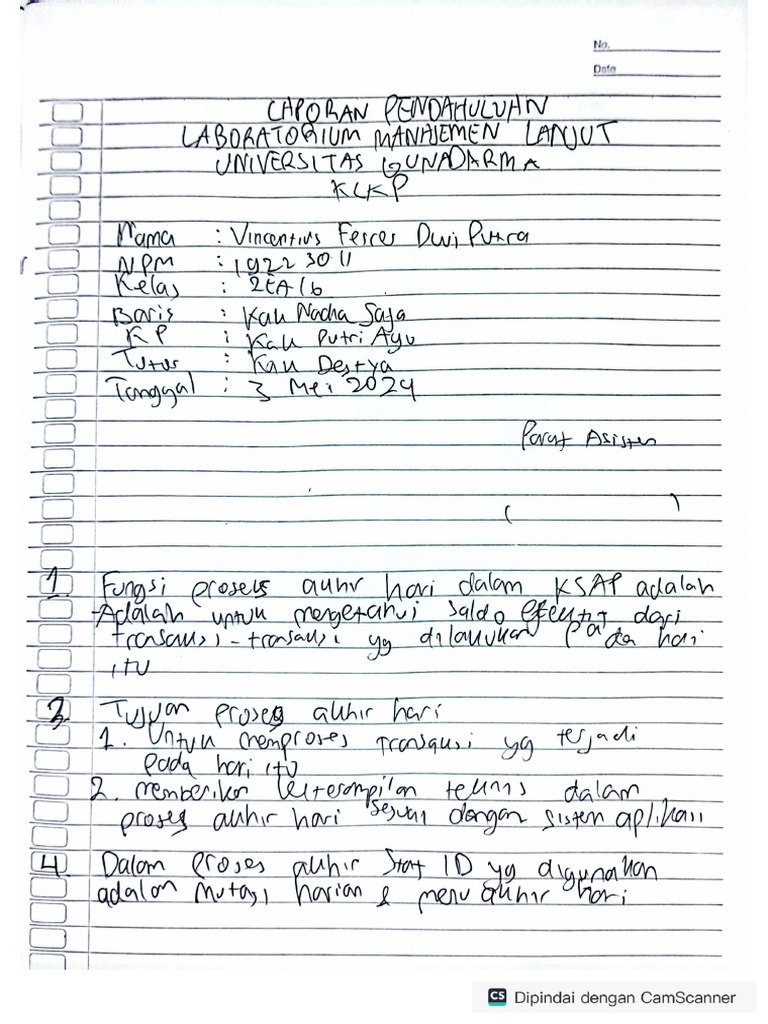 No.
Date
LAPORAN PENDAHULUAN
LABORATORIUM MANAJEMEN LANJUT
UNIVERSITAS GUNADARMA
KLKP
Nama : Vincentius Fesces Dwi Putra
NPM : 19223011
Kelas : 2EA16
Baris : Kak Nacha Saja
KP : Kak Putri Ayu
Tutor : Kak Destya
Tanggal : 3 Mei 2024
Paraf Asisten
( )
1 Fungsi proses akhir hari dalam KSAP adalah
- Adalah untuk mengetahui saldo efektif dari
transaksi-transaksi yg dilakukan pada hari
itu
3 Tujuan proses akhir hari
1. Untuk memproses transaksi yg terjadi
pada hari itu
2. memberikan keterampilan teknis dalam
proses akhir hari sesuai dengan sistem aplikasi
4 Dalam proses akhir Staf ID yg digunakan
adalah mutasi harian & menu akhir hari
CS Dipindai dengan CamScanner